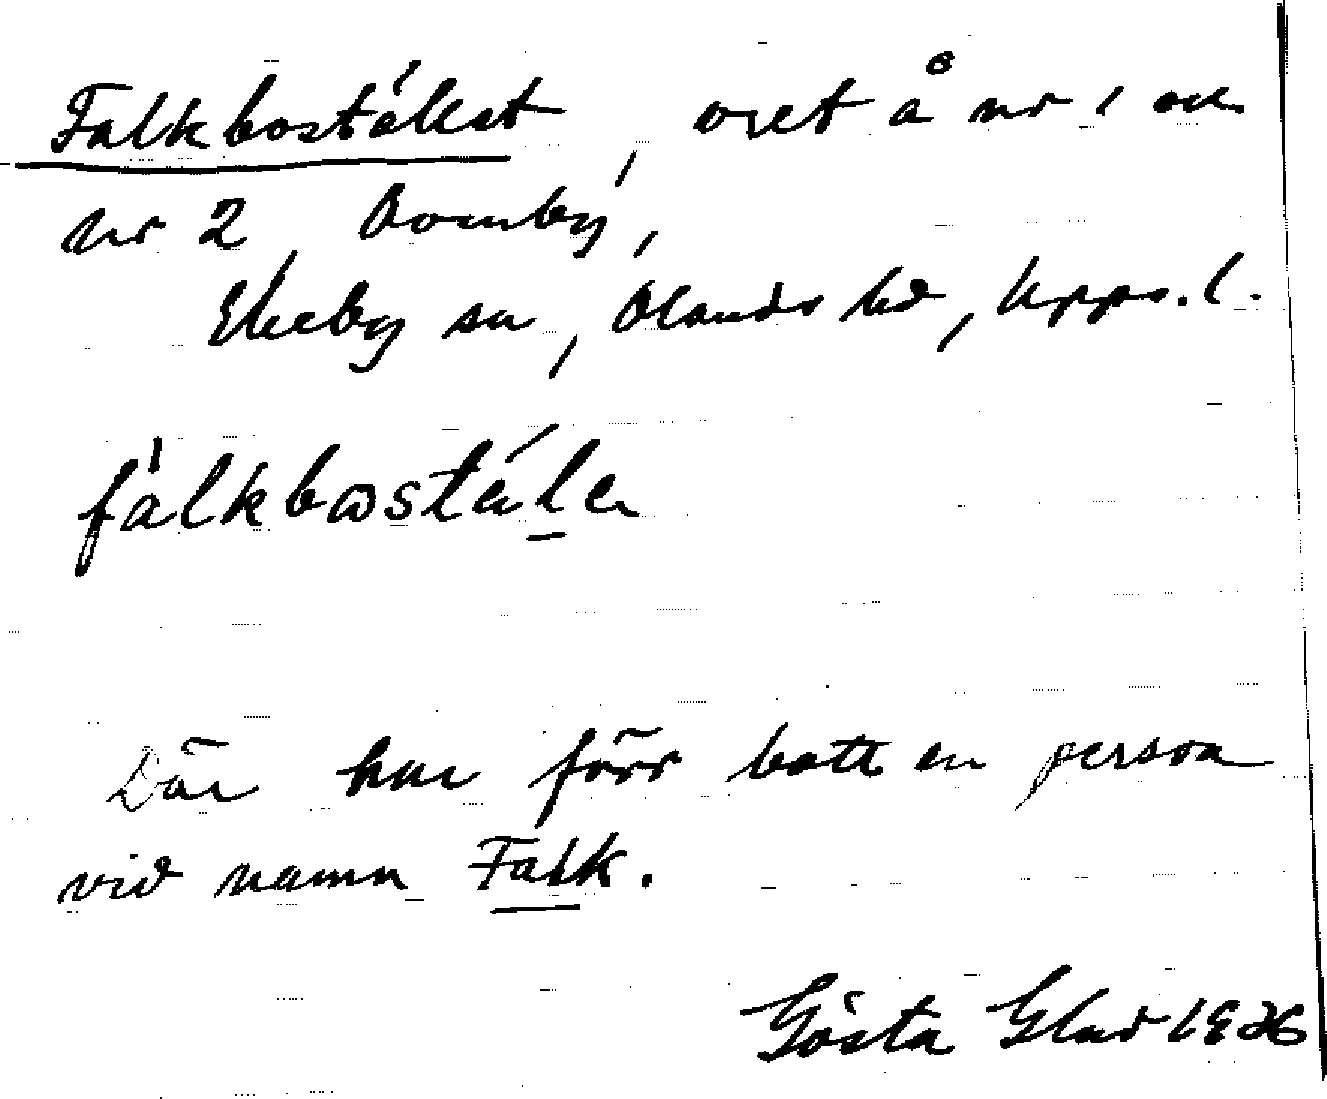 Falkboställat, oset å nr 1 och
nr 2 Domby,
Ekeby sn, Olands hd, Upps. l.
fàlkbωstéle
Där har förr bott en person
vid namn Falk.
Gösta Glad 1926